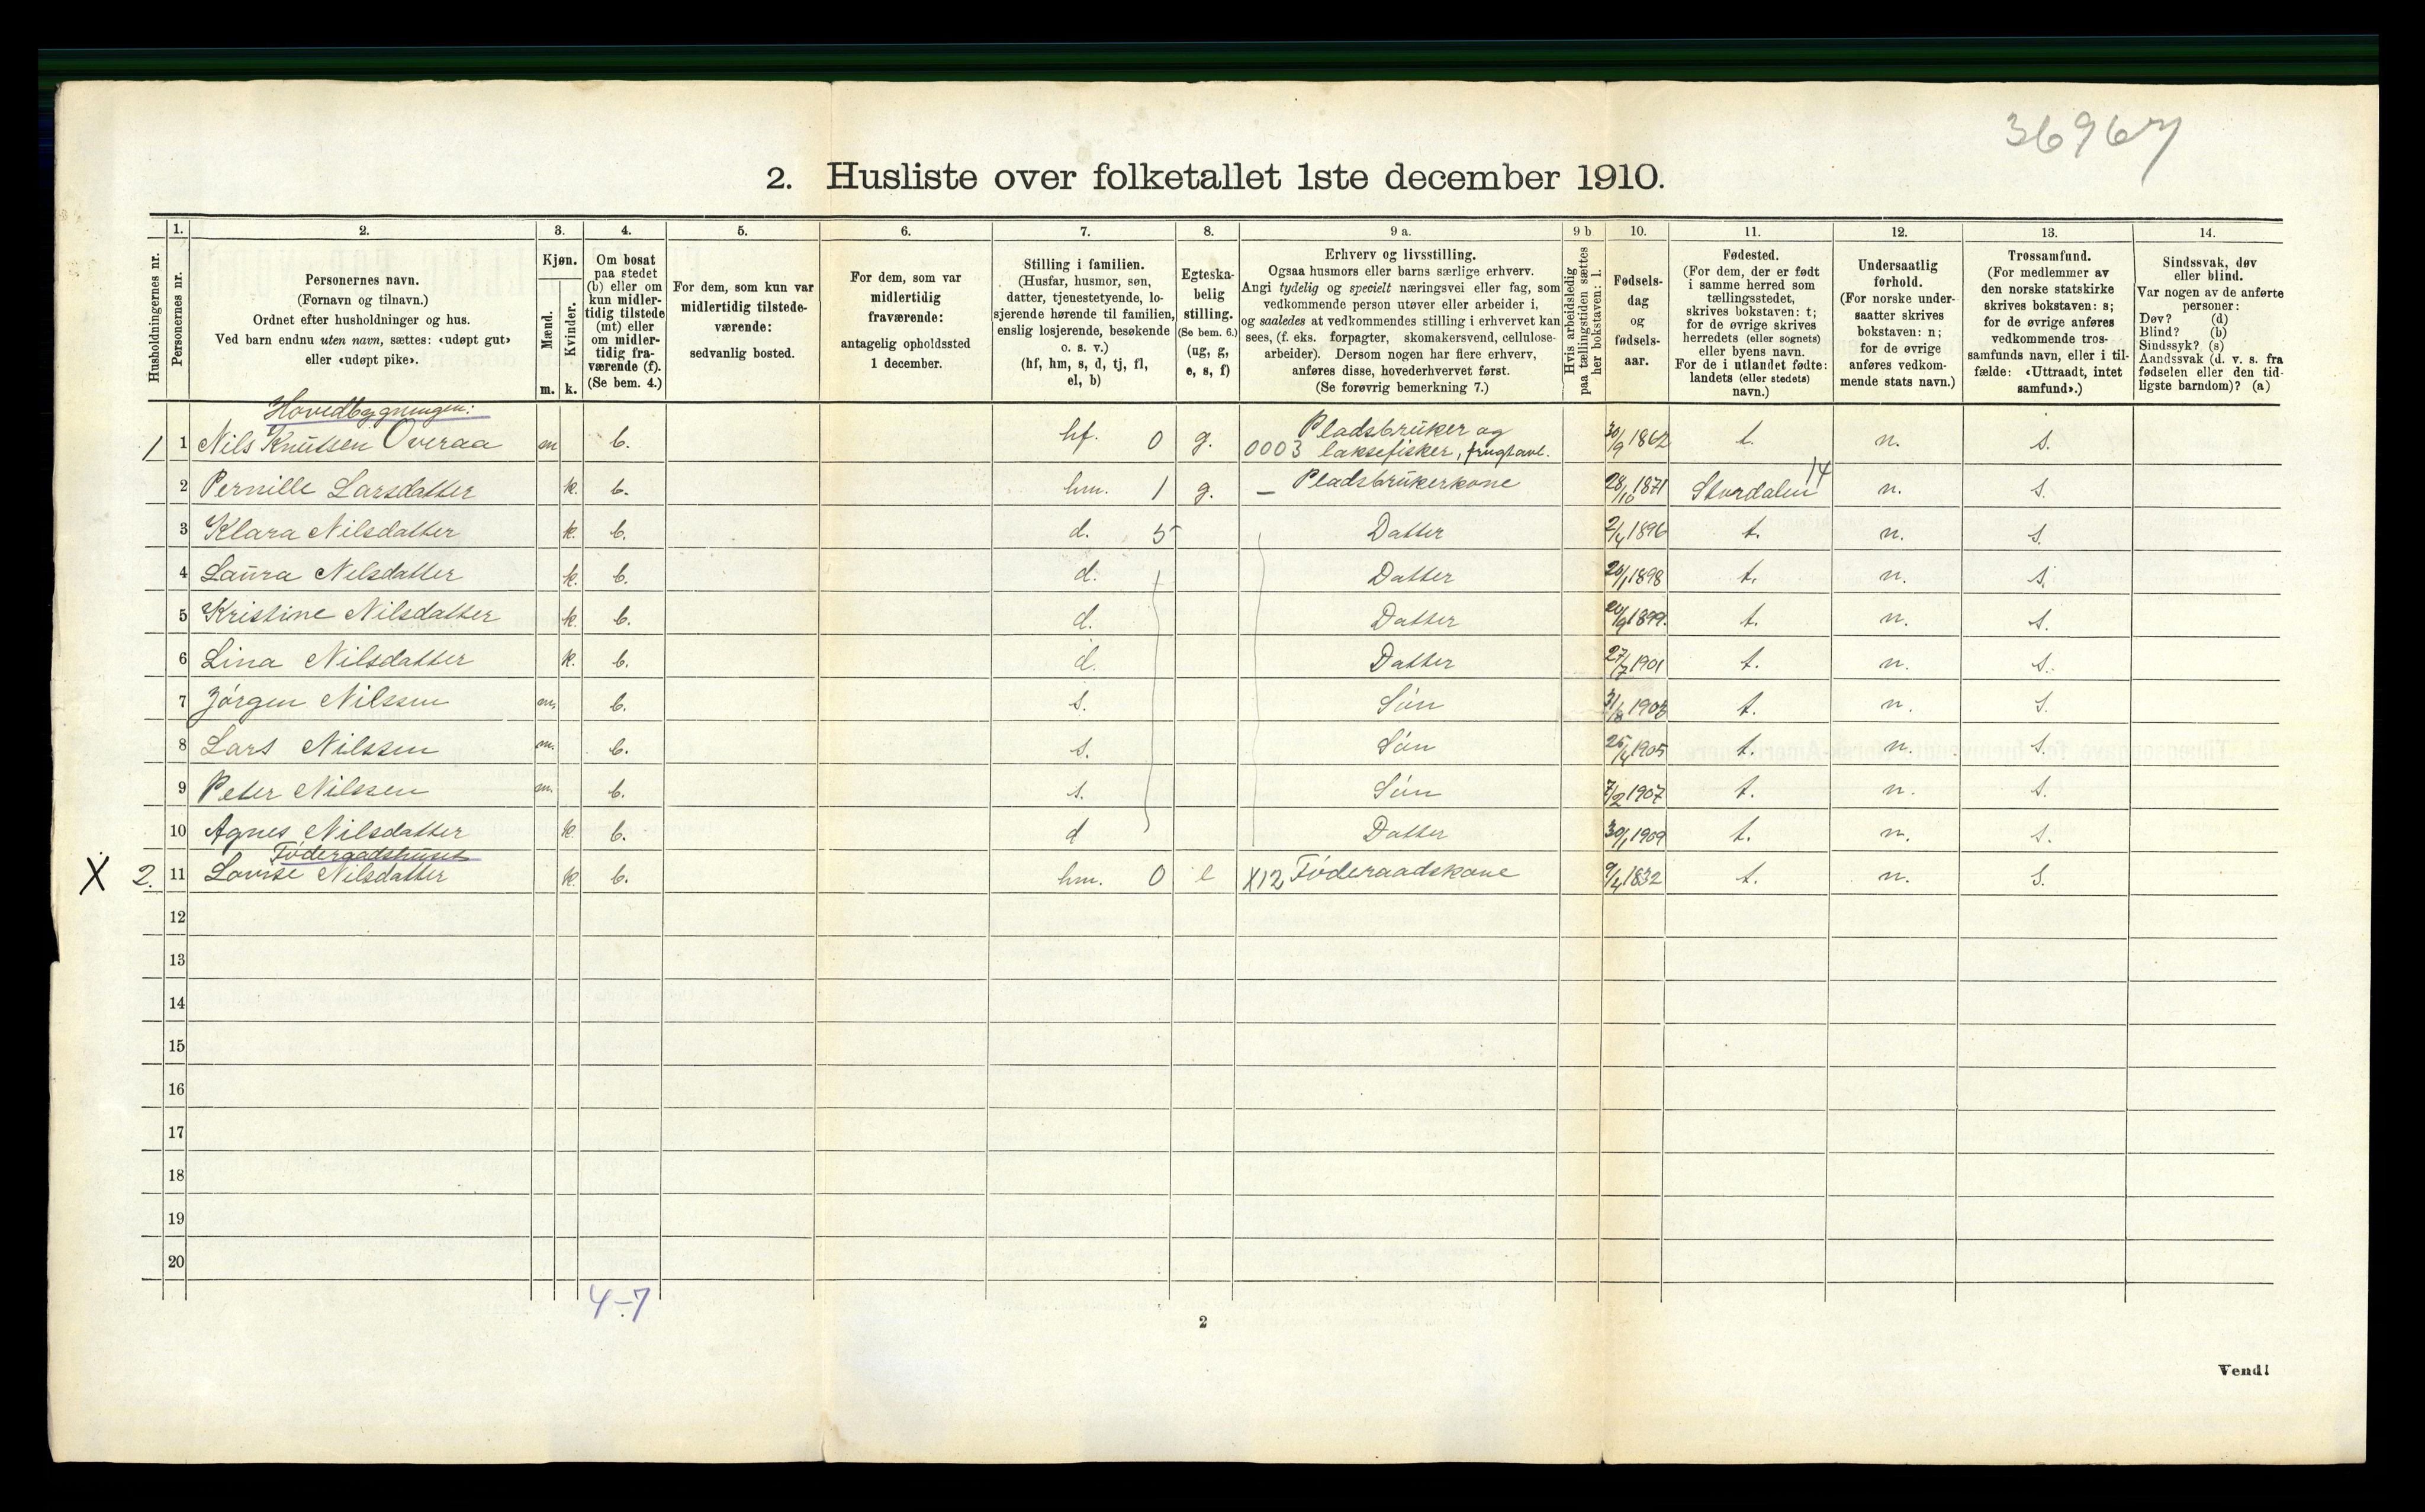 36967
2. Husliste over folketallet 1ste december 1910.
Husholdningernes nr.
1.
Personernes nr.
2.
Personernes navn.
(Fornavn og tilnavn.)
Ordnet efter husholdninger og hus.
Ved barn endnu uten navn, sættes: «udøpt gut»
eller «udøpt pike».
3.
Kjøn.
Mænd.
m.
Kvinder.
k.
4.
Om bosat
paa stedet
(b) eller om
kun midler-
tidig tilstede
(mt) eller
om midler-
tidig fra-
værende (f).
(Se bem. 4.)
5.
For dem, som kun var
midlertidig tilstede-
værende:
sedvanlig bosted.
6.
For dem, som var
midlertidig
fraværende:
antagelig opholdssted
1 december.
7.
Stilling i familien.
(Husfar, husmor, søn,
datter, tjenestetyende, lo-
sjerende hørende til familien,
enslig losjerende, besøkende
o. s. v.)
(hf, hm, s, d, tj, fl,
el, b)
8.
Egteska-
belig
stilling.
(Se bem. 6.)
(ug, g,
e, s, f)
9 a.
Erhverv og livsstilling.
Ogsaa husmors eller barns særlige erhverv.
Angi tydelig og specielt næringsvei eller fag, som
vedkommende person utøver eller arbeider i,
og saaledes at vedkommendes stilling i erhvervet kan
sees, (f. eks. forpagter, skomakersvend, cellulose-
arbeider). Dersom nogen har flere erhverv,
anføres disse, hovederhvervet først.
(Se forøvrig bemerkning 7.)
9 b
Hvis arbeidsledig
paa tællingstiden sættes
her bokstaven: l.
10.
Fødsels-
dag
og
fødsels-
aar.
11.
Fødested.
(For dem, der er født
i samme herred som
tællingsstedet,
skrives bokstaven: t;
for de øvrige skrives
herredets (eller sognets)
eller byens navn.
For de i utlandet fødte:
landets (eller stedets)
navn.)
12.
Undersaatlig
forhold.
(For norske under-
saatter skrives
bokstaven: n;
for de øvrige
anføres vedkom-
mende stats navn.)
13.
Trossamfund.
(For medlemmer av
den norske statskirke
skrives bokstaven: s;
for de øvrige anføres
vedkommende tros-
samfunds navn, eller i til-
fælde: «Uttraadt, intet
samfund».)
14.
Sindssvak, døv
eller blind.
Var nogen av de anførte
personer:
Døv? (d)
Blind? (b)
Sindssyk? (s)
Aandssvak (d. v. s. fra
fødselen eller den tid-
ligste barndom)? (a)
Hovedbygningen:
1 1 Nils Knutsen Overaa m b. hf. 0 g. Pladsbruker og
0003 laksefisker, frugtavl. 30/9 1862 t. n. s.
2 Pernille Larsdatter k. b. hm. 1 g. – Pladsbrukerkone 28/10 1871 Stordalen 14 n. s.
3 Klara Nilsdatter k. b. d. 5 Datter 2/4 1896 t. n. s.
4 Laura Nilsdatter k. b. d. Datter 20/1 1898 t. n. s.
5 Kristine Nilsdatter k. b. d. Datter 20/9 1899. t. n. s.
6 Lina Nilsdatter k. b. d. Datter 27/7 1901 t. n. s.
7 Jørgen Nilssen m. b. s. Søn 31/8 1903 t. n. s.
8 Lars Nilssen m. b. s. Søn 25/4 1905 t. n. s.
9 Peter Nilssen m. b. s. Søn 7/2 1907 t. n. s.
10 Agnes Nilsdatter k. b. d Datter 30/1 1909 t. n. s.
Føderaadshuset
X 2. 11 Lovise Nilsdatter k. b. hm. 0 e X12 Føderaadskone 9/4 1832 t. n. s.
12
13
14
15
16
17
18
19
20
4-7
2
Vend!